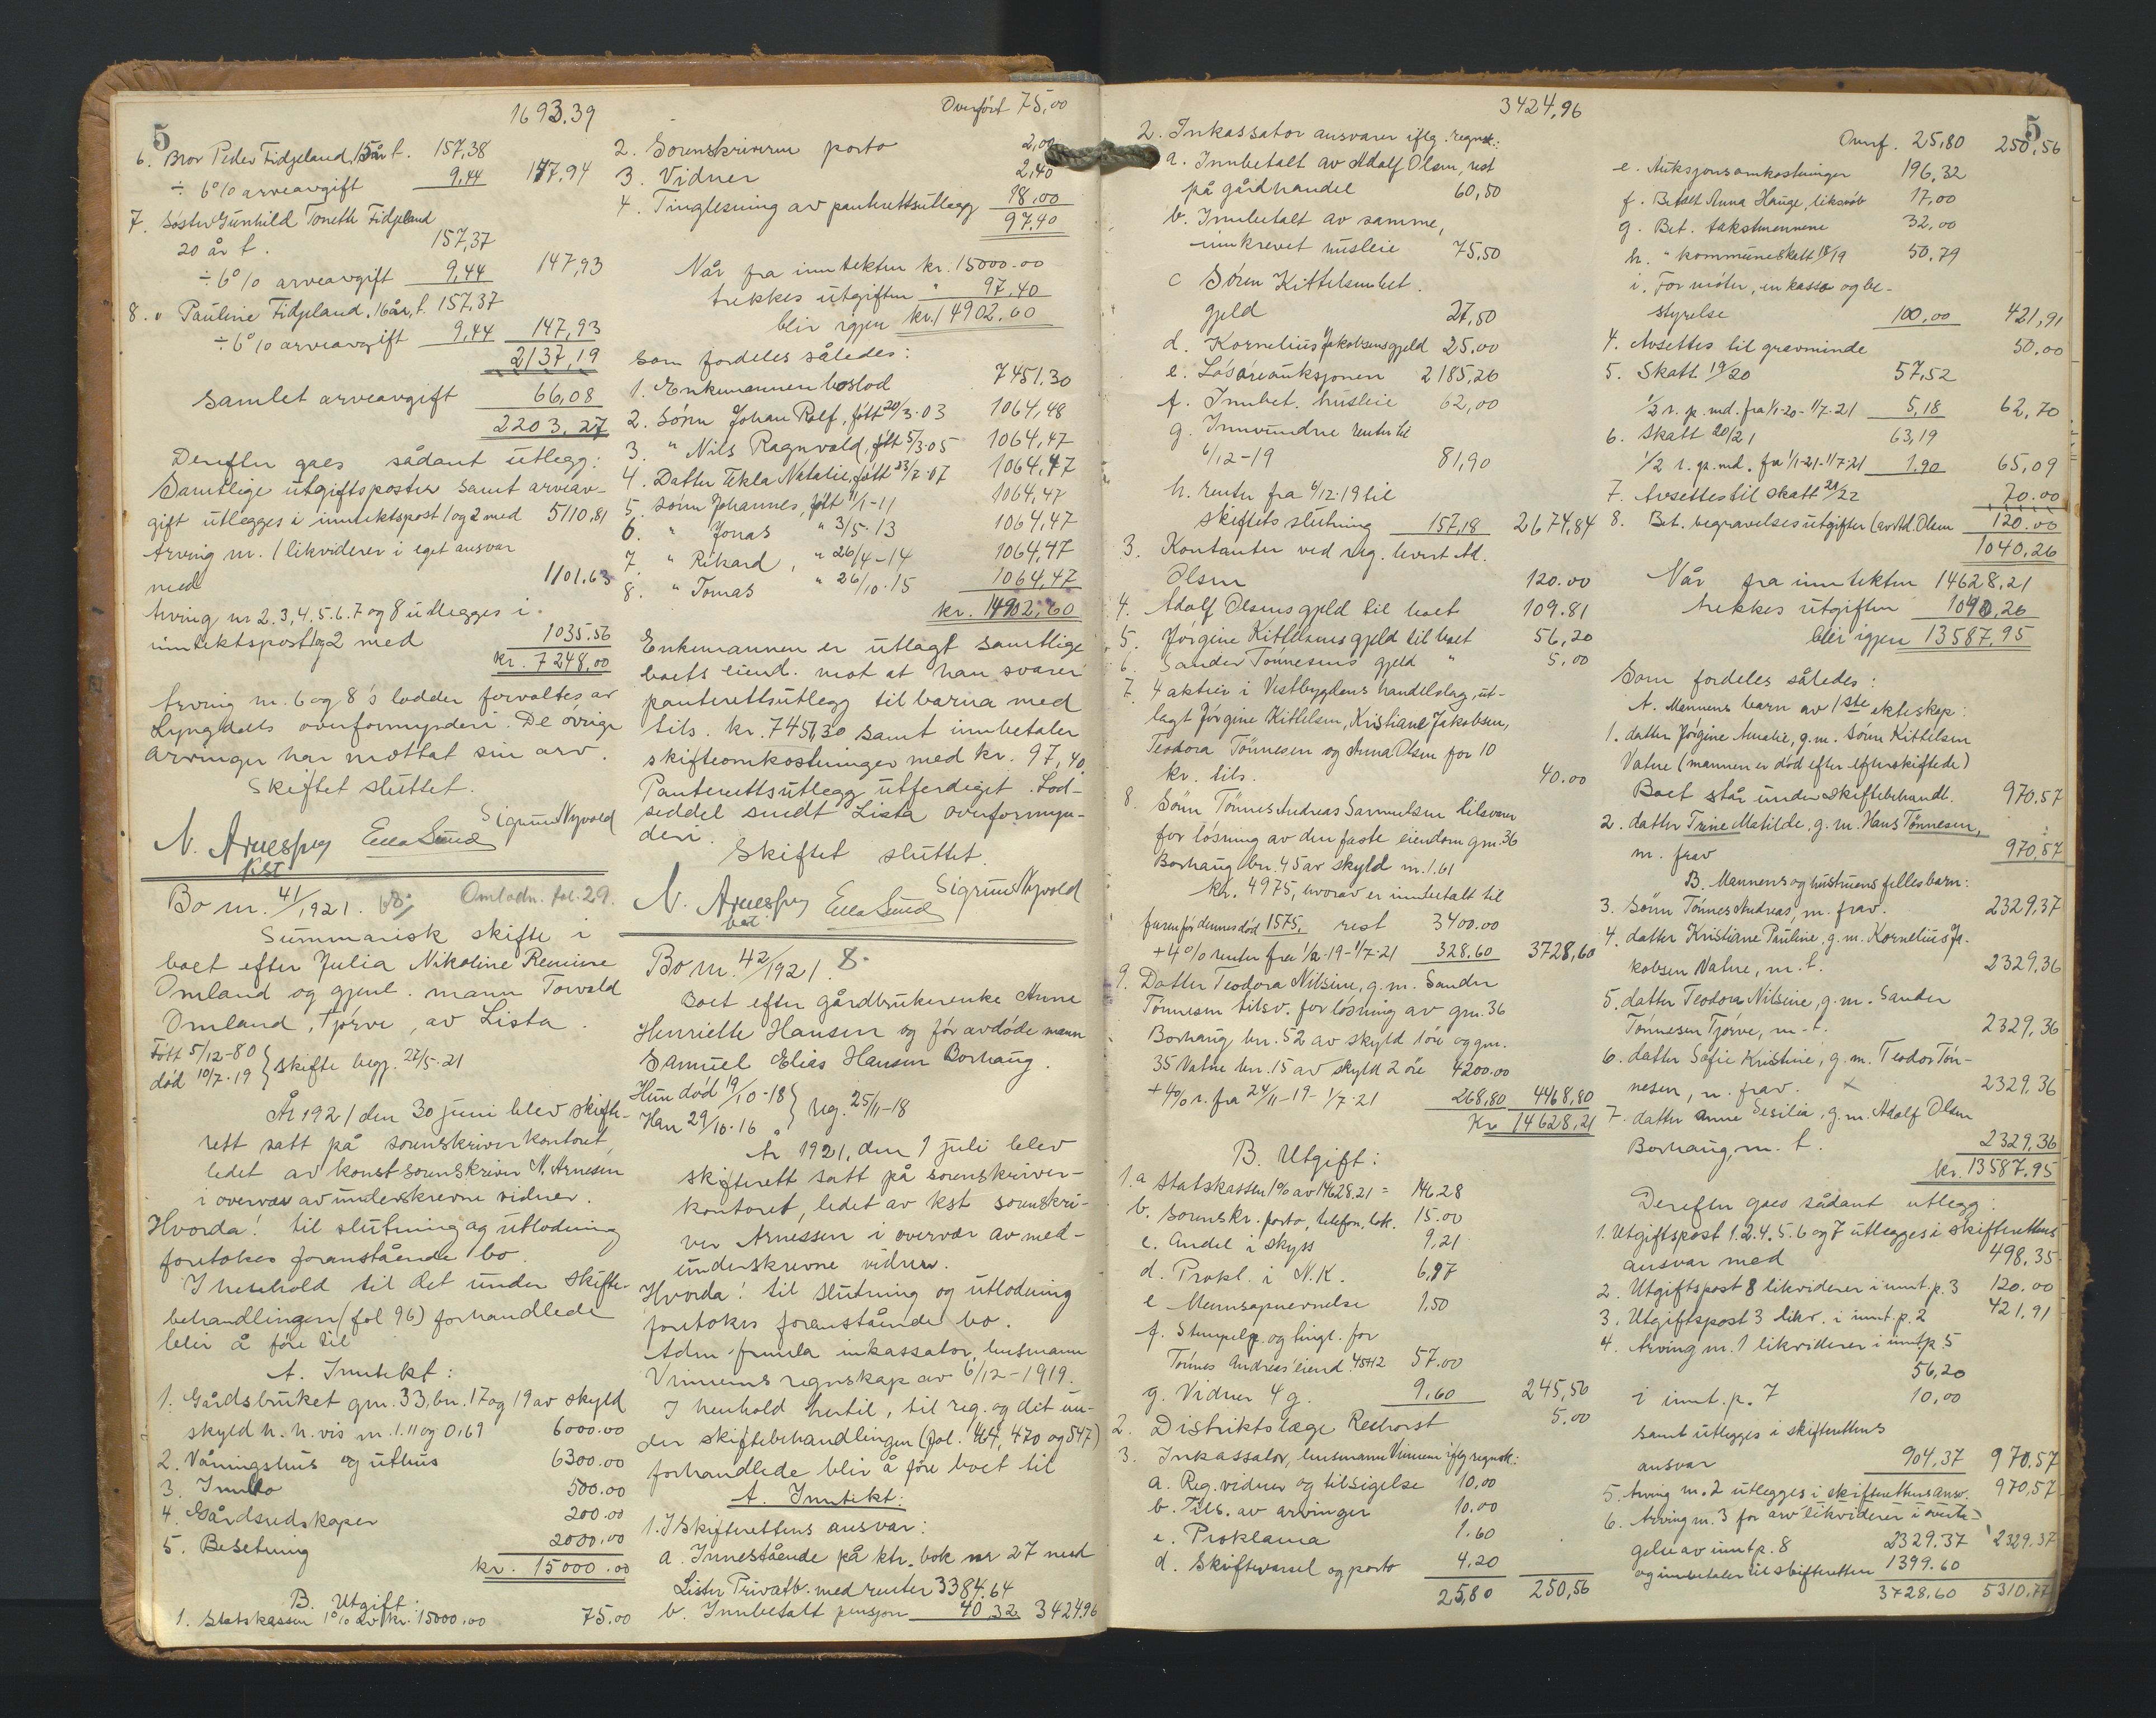 5
1693.39
6. Bror Peder Fidjeland 15 år f. 157,38
÷ 6% arveavgift 9,44 147,94
7. Søster Gunhild Tonette Fidjeland
20 år f. 157,37
÷ 6% arveavgift 9,44 147,93
8. " Pauline Fidjeland, 16 år, f. 157,37
÷ 6% arveavgift 9,44 147,93
2137,19
Samlet arveavgift 66,08
2203,27
Derefter gaes sådant utlegg:
Samtlige utgiftsposter samt arveav-
gift utlegges i inntektspost 1 og 2 med 5110,81
Arving nr. 1 likviderer i eget ansvar
med 1101.63
Arving nr 2.3,4.5.6.7 og 8 utlegges i
inntektspost 1 og 2 med 1035.56
kr. 7248,00
Arving nr. 6 og 8's lodder forvaltes av
Lyngdals overformynderi. De øvrige
arvinger har mottat sin arv.
Skiftet sluttet.
N. Arnesen Ella Lund Sigrun Nyvold
kst
Bo nr. 41/1921. Omlodn. fol. 29.
Summarisk skifte i
boet efter Julia Nikoline Remine
Omland og gjenl. mann Torvald
Omland, Tjørve, av Lista.
Født 5/12-80
død 10/7-19 } skifte begj. 27/5-21
År 1921 den 30 juni blev skifte-
rett satt på sorenskriverkontoret,
ledet av konst sorenskriver N. Arnesen
i overvær av underskrevne vidner.
Hvorda! til slutning ag utlodning
foretokes foranstående bo.
I henhold til det under skifte-
behandlingen (fol 96) forhandlede
blir å føre til
A. Inntekt:
1. Gårdsbruket gnr. 33, bnr. 17 og 19 av skyld
skyld h. h. vis m. 1.11 og 0,69 6000.00
2. Våningshus og uthus 6300.00
3. Innbo 500.00
4. Gårdsredskaper 200.00
5. Besetning 2000,00
kr. 15000.00
B. Utgift:
1. Statskassen 1% av kr. 15000.00 75.00
Overført 75,00
2. Sorenskriveren porto 2,00
3. Vidner 2,40
4. Tinglesning av panterettsutlegg 18,00
97.40
Når fra inntekten kr. 15000.00
trekkes utgiften " 97,40
blir igjen kr. 14902.60
som fordeles således:
1. Enkemannen boslod 7451.30
2. Sønn Johan Rolf, født 20/3-03 1064,48
3. " Nils Ragnvald, født 5/3-05 1064,47
4. Datter Tekla Natalie, født 23/7-07 1064,47
5. Sønn Johannes, født 1/1-11 1064,47
6. " Jonas " 3/5-13 1064,47
7. " Rikard, " 26/4-14 1064,47
8. " Tomas " 26/10.15 1064,47
kr. 14902,60
Enkemannen er utlagt samtlige
boets eiend. mot at han svarer
panterettsutlegg til barna med
tils. kr. 7451,30 samt innbetaler
skifteomkostninger med kr. 97,40.
Panterettsutlegg utferdiget. Lod-
seddel sendt Lista overformyn-
deri.
Skiftet sluttet.
N. Arnesen Ella Lund Sigrun Nyvold
kst
Bo nr. 42/1921. 8.
Boet efter gårdbrukerenke Anne
Henriette Hansen og før avdøde mann
Samuel Elias Hansen Borhaug.
Hun død 19/10-18
Han " 29/10-16 } reg. 25/11-18
År 1921, den 1 juli blev
skifterett satt på sorenskriver-
kontoret, ledet av kst sorenskri-
ver Arnessen i overvær av med-
underskrevne vidner.
Hvorda! til slutning og utlodning
foretokes foranstående bo.
Adm. fremla inkassator, lensmann
Vinnems regnskap av 6/12-1919.
I henhold hertil, til reg. og det un-
der skiftebehandlingen (fol. 464, 470 og 547)
forhandlede blir å føre boet til
A. Inntekt:
1. I Skifterettens ansvar:
a. Innestående på ktr. bok nr 27 med
Lister Privatb. med renter 3384.64
b. Innbetalt pensjon 40.32 3424.96
5
3424,96
2. Inkassator ansvarer iflg. regnsk.:
a. Innbetalt av Adolf Olsen, rest
på gårdhandel 60,50
b. Innbetalt av samme,
innkrevet husleie 75,50
c Søren Kittelsen bet.
gjeld 27,50
d. Kornelius Jakobsens gjeld 25.00
e. Løsøreauksjonen 2185,26
f. Innbet. husleie 62,00
g. Innvundne renter til
6/12-19 81,90
h. renter fra 6/12-19 til
skiftets slutning 157,18 2674,84
3. Kontanter ved reg. levert Ad.
Olsen 120.00
4. Adolf Olsens gjeld til boet 109.81
5. Jørgine Kittelsens gjeld til boet 56,20
6. Sander Tønnesens gjeld " 5,00
7. 4 aktier i Vestbygdens handelslag, ut-
lagt Jørgine Kittelsen, Kristiane Jakobsen,
Teodora Tönnesen og Anna Olsen for 10
kr. tils. 40.00
8. Sønn Tönnes Andreas Samuelsen tilsvarer
for løsning av den faste eiendom gnr. 36
Borhaug bnr. 45 av skyld m. 1.61
kr. 4975, hvorav er innbetalt til
faren før dennes død 1575, rest 3400.00
+ 4% renter fra 1/2-19-1/7-21 328.60 3728,60
9. Datter Teodora Nilsine, g. m. Sander
Tønnesen tilsv. for løsning av gnr. 36
Borhaug bnr. 52 av skyld 1 øre og gnr.
35 Vatne bnr. 15 av skyld 2 øre 4200.00
+ 4% r. fra 24/11-19-1/7-21 268,80 4468,80
Kr 14628,21
B. Utgift:
1.a Statskassen 1% av 14628.21 = 146,28
b. Sorenskr. porto, telefon, lok. 15.00
c. Andel i skyss 9,21
d. Prokl. i N.K. 6,97
e 1,50
f. Stempelp. og tingl. for
Tönnes Andreas' eiend 57.00
g. Vidner 4 g. 9,60 245,56
2. Distriktslæge 5.00
3. Inkassator, lensmann Vinnem iflg regnsk.:
a. Reg. vidner og tilsigelse 10.00
b. Tils. av arvinger 10.00
c. Proklama 1.60
d. Skiftevarsel og porto 4,20
25,80 250,56
5
Overf. 25,80 250,56
e. Auksjonsomkostninger 196,32
f. Betalt Anna Hauge, liksvøb 17,00
g. Bet. takstmennene 32,00
h. " kommuneskatt 18/19 50,79
i. For møter, inkasso og be-
styrelse 100,00 421,91
4. Avsettes til gravminde 50.00
5. Skatt 19/20 57,52
1/2 r. p. md. fra 1/1-20-1/7-21 5,18 62,70
6. Skatt 20/21 63,19
1/2 r. p. md. fra 1/1-21-1/7-21 1.90 65,09
7. Avsettes til skatt 21/22 70.00
8. Bet. begravelsesutgifter (av Ad. Olsen 120.00
1040,26
Når fra inntekten 14628,21
trekkes utgiften 1040,26
blir igjen 13587,95
Som fordeles således:
A. Mannens barn av 1ste ekteskap:
1. datter Jørgine Amalie, g. m. Sören Kittelsen
Vatne (mannen er død efter efterskiftede)
Boet står under skiftebehandl. 970,57
2. datter Trine Matilde, g. m. Hans Tønnesen,
m. frav 970,57
B. Mannens og hustruens fellesbarn:
3. Sønn Tønnes Andreas, m. frav. 2329,37
4. datter Kristiane Pauline, g. m. Kornelius Ja-
kobsen Vatne, m. t. 2329,36
5. datter Teodora Nilsine, g. m. Sander
Tønnesen Tjørve, m. t. 2329,36
6. datter Sofie Kristine, g. m. Teodor Tøn-
nesen, m. frav. x 2329,36
7. datter Anne Sesilia, g. m. Adolf Olsen
Borhaug, m. t. 2329,36
kr. 13587,95
Derefter gaes sådant utlegg:
1. Utgiftspost 1.2.4.5.6 og 7 utlegges i skifterettens
ansvar med 498,35
2. Utgiftspost 8 likviderer i innt. p. 3 120.00
3. Utgiftspost 3 likv. i innt. p. 2 421,91
4. Arving nr. 1 likviderer i innt. p. 5
56,20
i innt. p. 7 10,00
samt utlegges i skifterettens
ansvar 904,37 970.57
5. Arving nr. 2 utlegges i skifterettens ansv. 970,57
6. Arving nr. 3 for arv likviderer i
gelse av innt p. 8 2329.37 2329,37
og innbetaler til skifteretten 1399.60
3728.60 5310.77